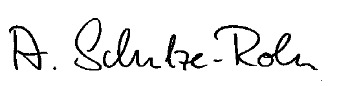 A. Schulze-Rohr